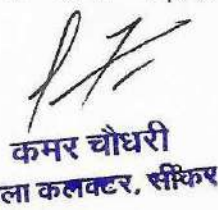 कमर चौधरी
ला कलक्टर, सीकर